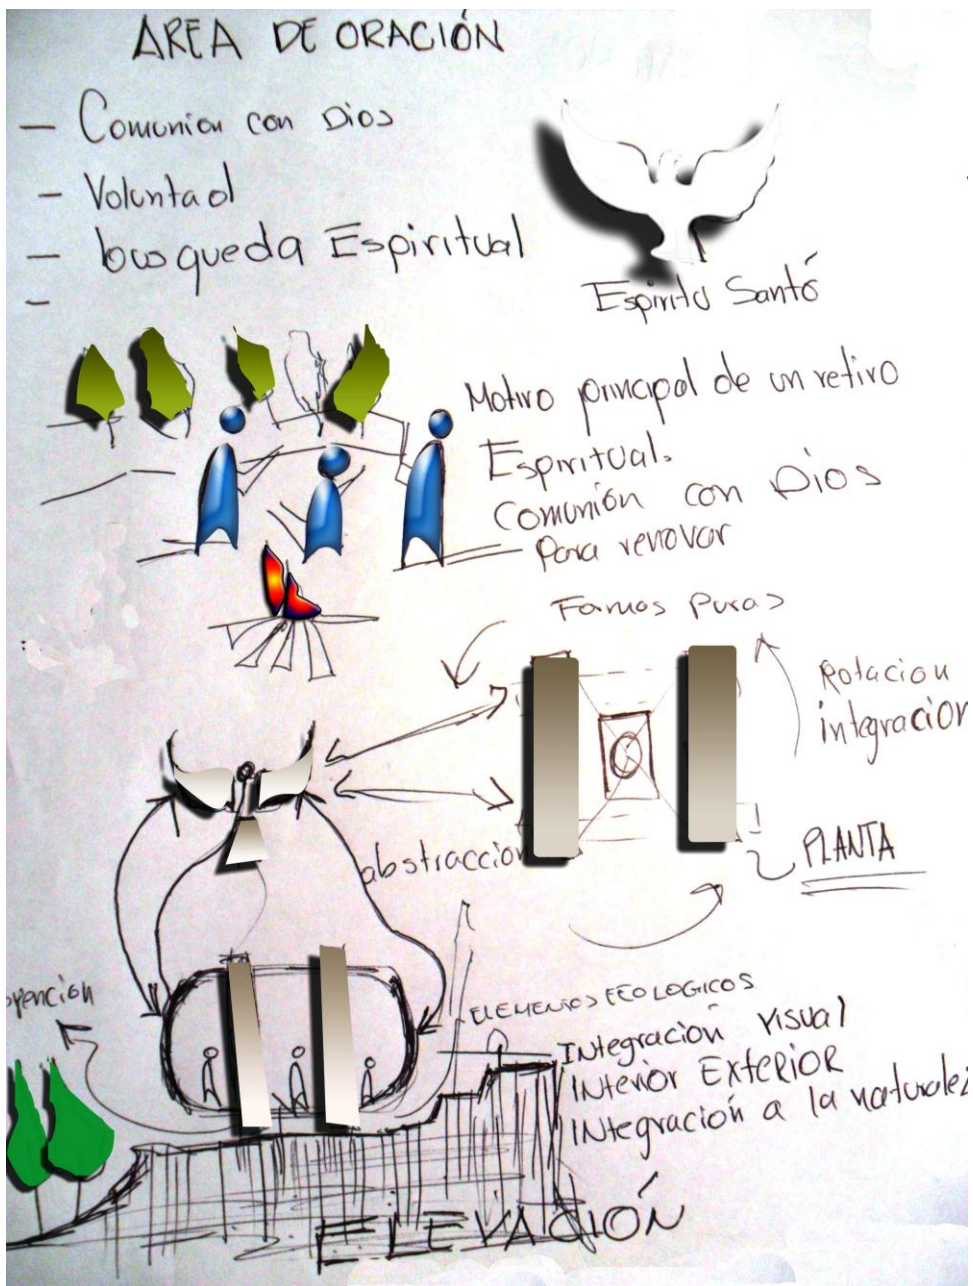 AREA DE ORACIÓN
- Comunion con Dios
- Voluntad
- busqueda Espiritual
-
Espiritu Santó
Motivo principal de un retiro
Espiritual.
Comunión con Dios
Para renovar
Formas Puras
Rotacion
integracion
abstraccion
PLANTA
ELEMENTOS ECOLOGICOS
Integración visual
INterior EXTERIOR
INtegración a la naturalez
ELEVACIÓN